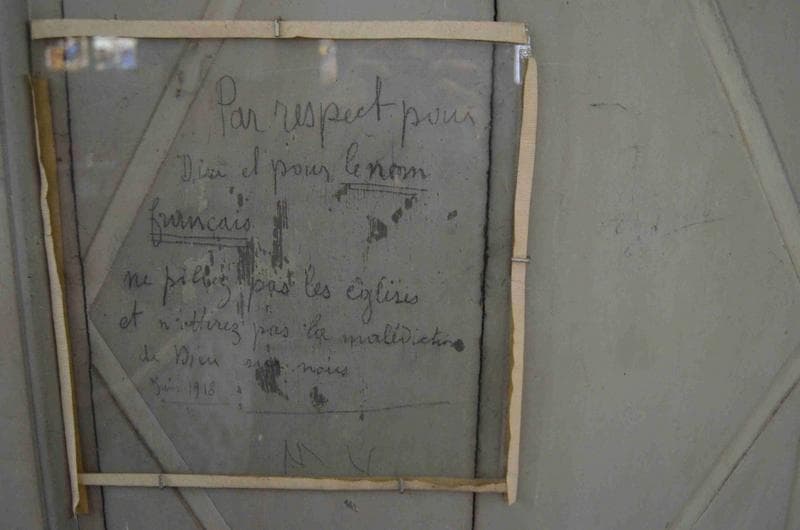 Par respect pour
Dieu et pour le nom
français
ne pillez pas les églises
et n'attirez pas la malédiction
de Dieu sur nous
Juin 1918